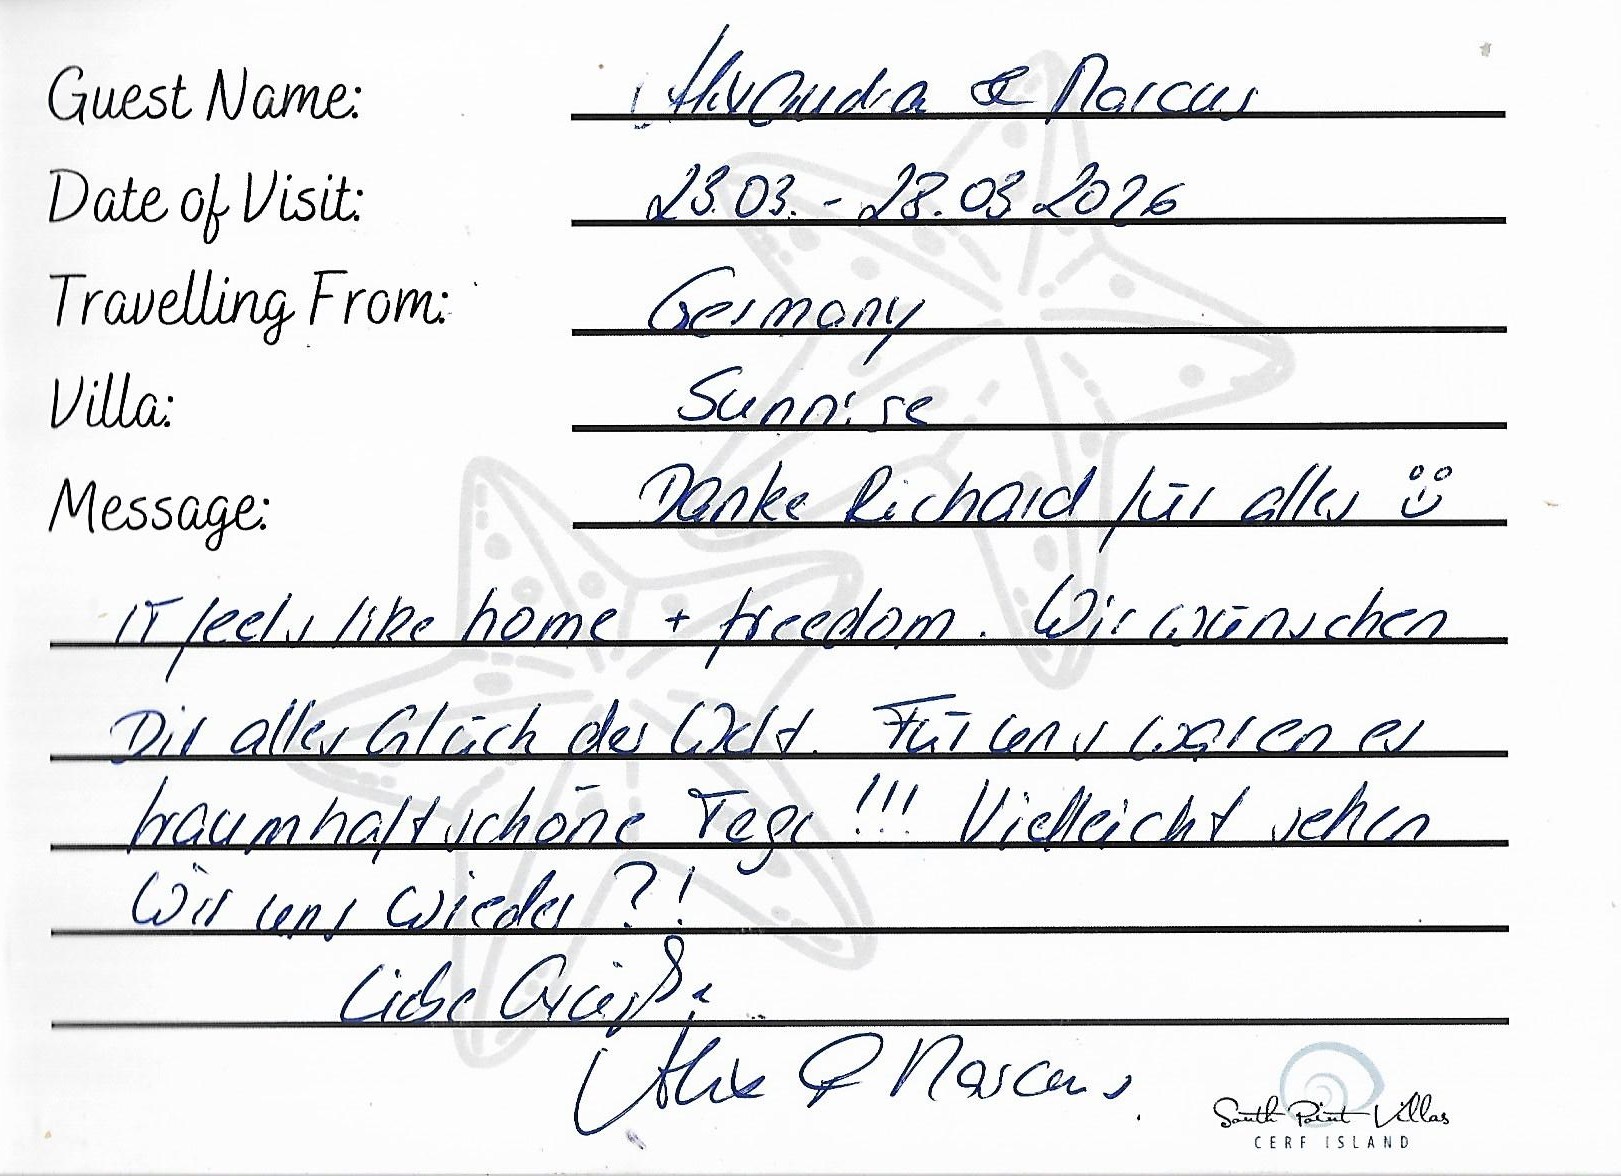 Guest Name: Alexandra & Marcus
Date of Visit: 23.03. - 28.03 2026
Travelling From: Germany
Villa: Sunrise
Message: Danke Richard für alles
IT feels like home + freedom. Wir wünschen
Dir alles Glück der Welt. Für uns waren es
traumhaft schöne Tage !!! Vielleicht sehen
Wir uns wieder ?!
Liebe Grüße
Alex & Marcus
South Point Villas
CERF ISLAND